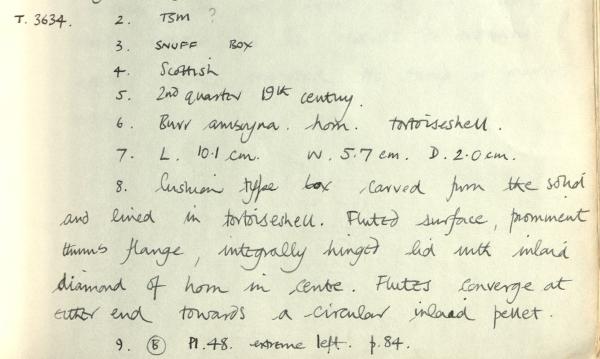 T. 3634. 2. TSM ?
3. SNUFF BOX
4. Scottish
5. 2nd quarter 19th century.
6. Burr amboyna. horn. tortoiseshell.
7. L. 10.1 cm. W. 5.7 cm. D. 2.0 cm.
8. Cushion type box carved from the solid
and lined in tortoiseshell. Fluted surface, prominent
thumb flange, integrally hinged lid with inlaid
diamond of horn in centre. Flutes converge at
either end towards a circular inlaid pellet.
9. B Pl. 48. extreme left. p. 84.